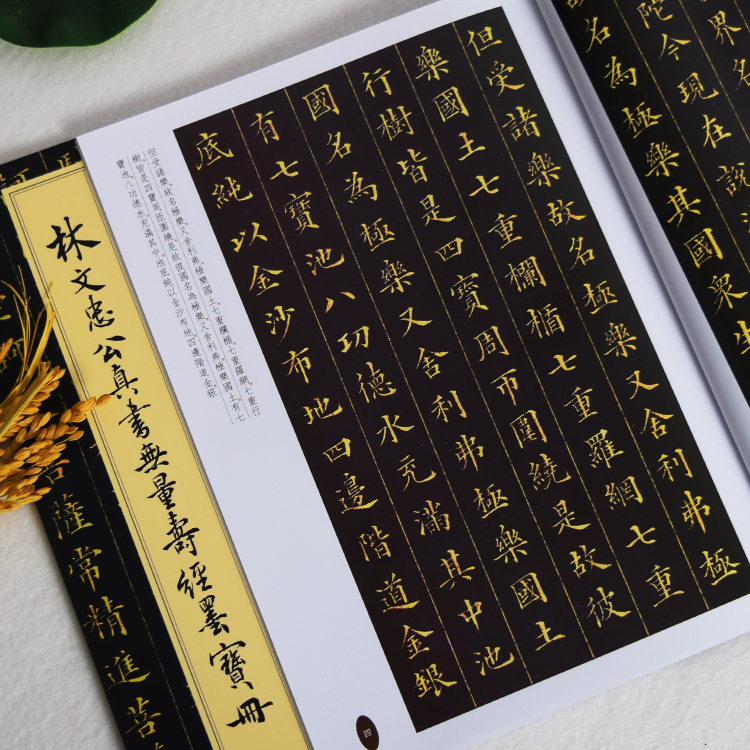 界名
陀今現在說
故名為極樂其國眾生
但受諸樂故名極樂又舍利弗極
樂國土七重欄楯七重羅網七重
行樹皆是四寶周帀圍繞是故彼
國名為極樂又舍利弗極樂國土
有七寶池八功德水充滿其中池
底純以金沙布地四邊階道金銀
但受諸樂，故名極樂。又舍利弗，極樂國土，七重欄楯，七重羅網，七重行
樹，皆是四寶周匝圍繞，是故彼國名為極樂。又舍利弗，極樂國土，有七
寶池，八功德水，充滿其中，池底純以金沙布地。四邊階道，金銀
四
林文忠公真書無量壽經墨寶冊
菩薩常精進菩